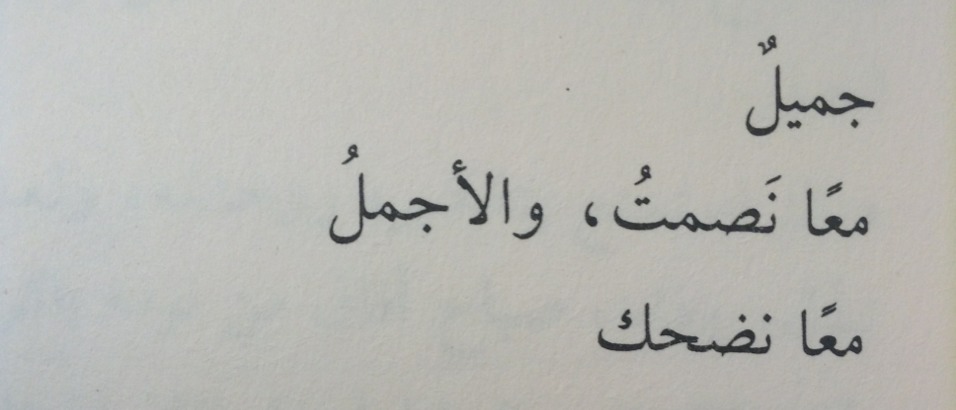 جميلٌ
معًا نَصمتُ، والأجملُ
معًا نضحك